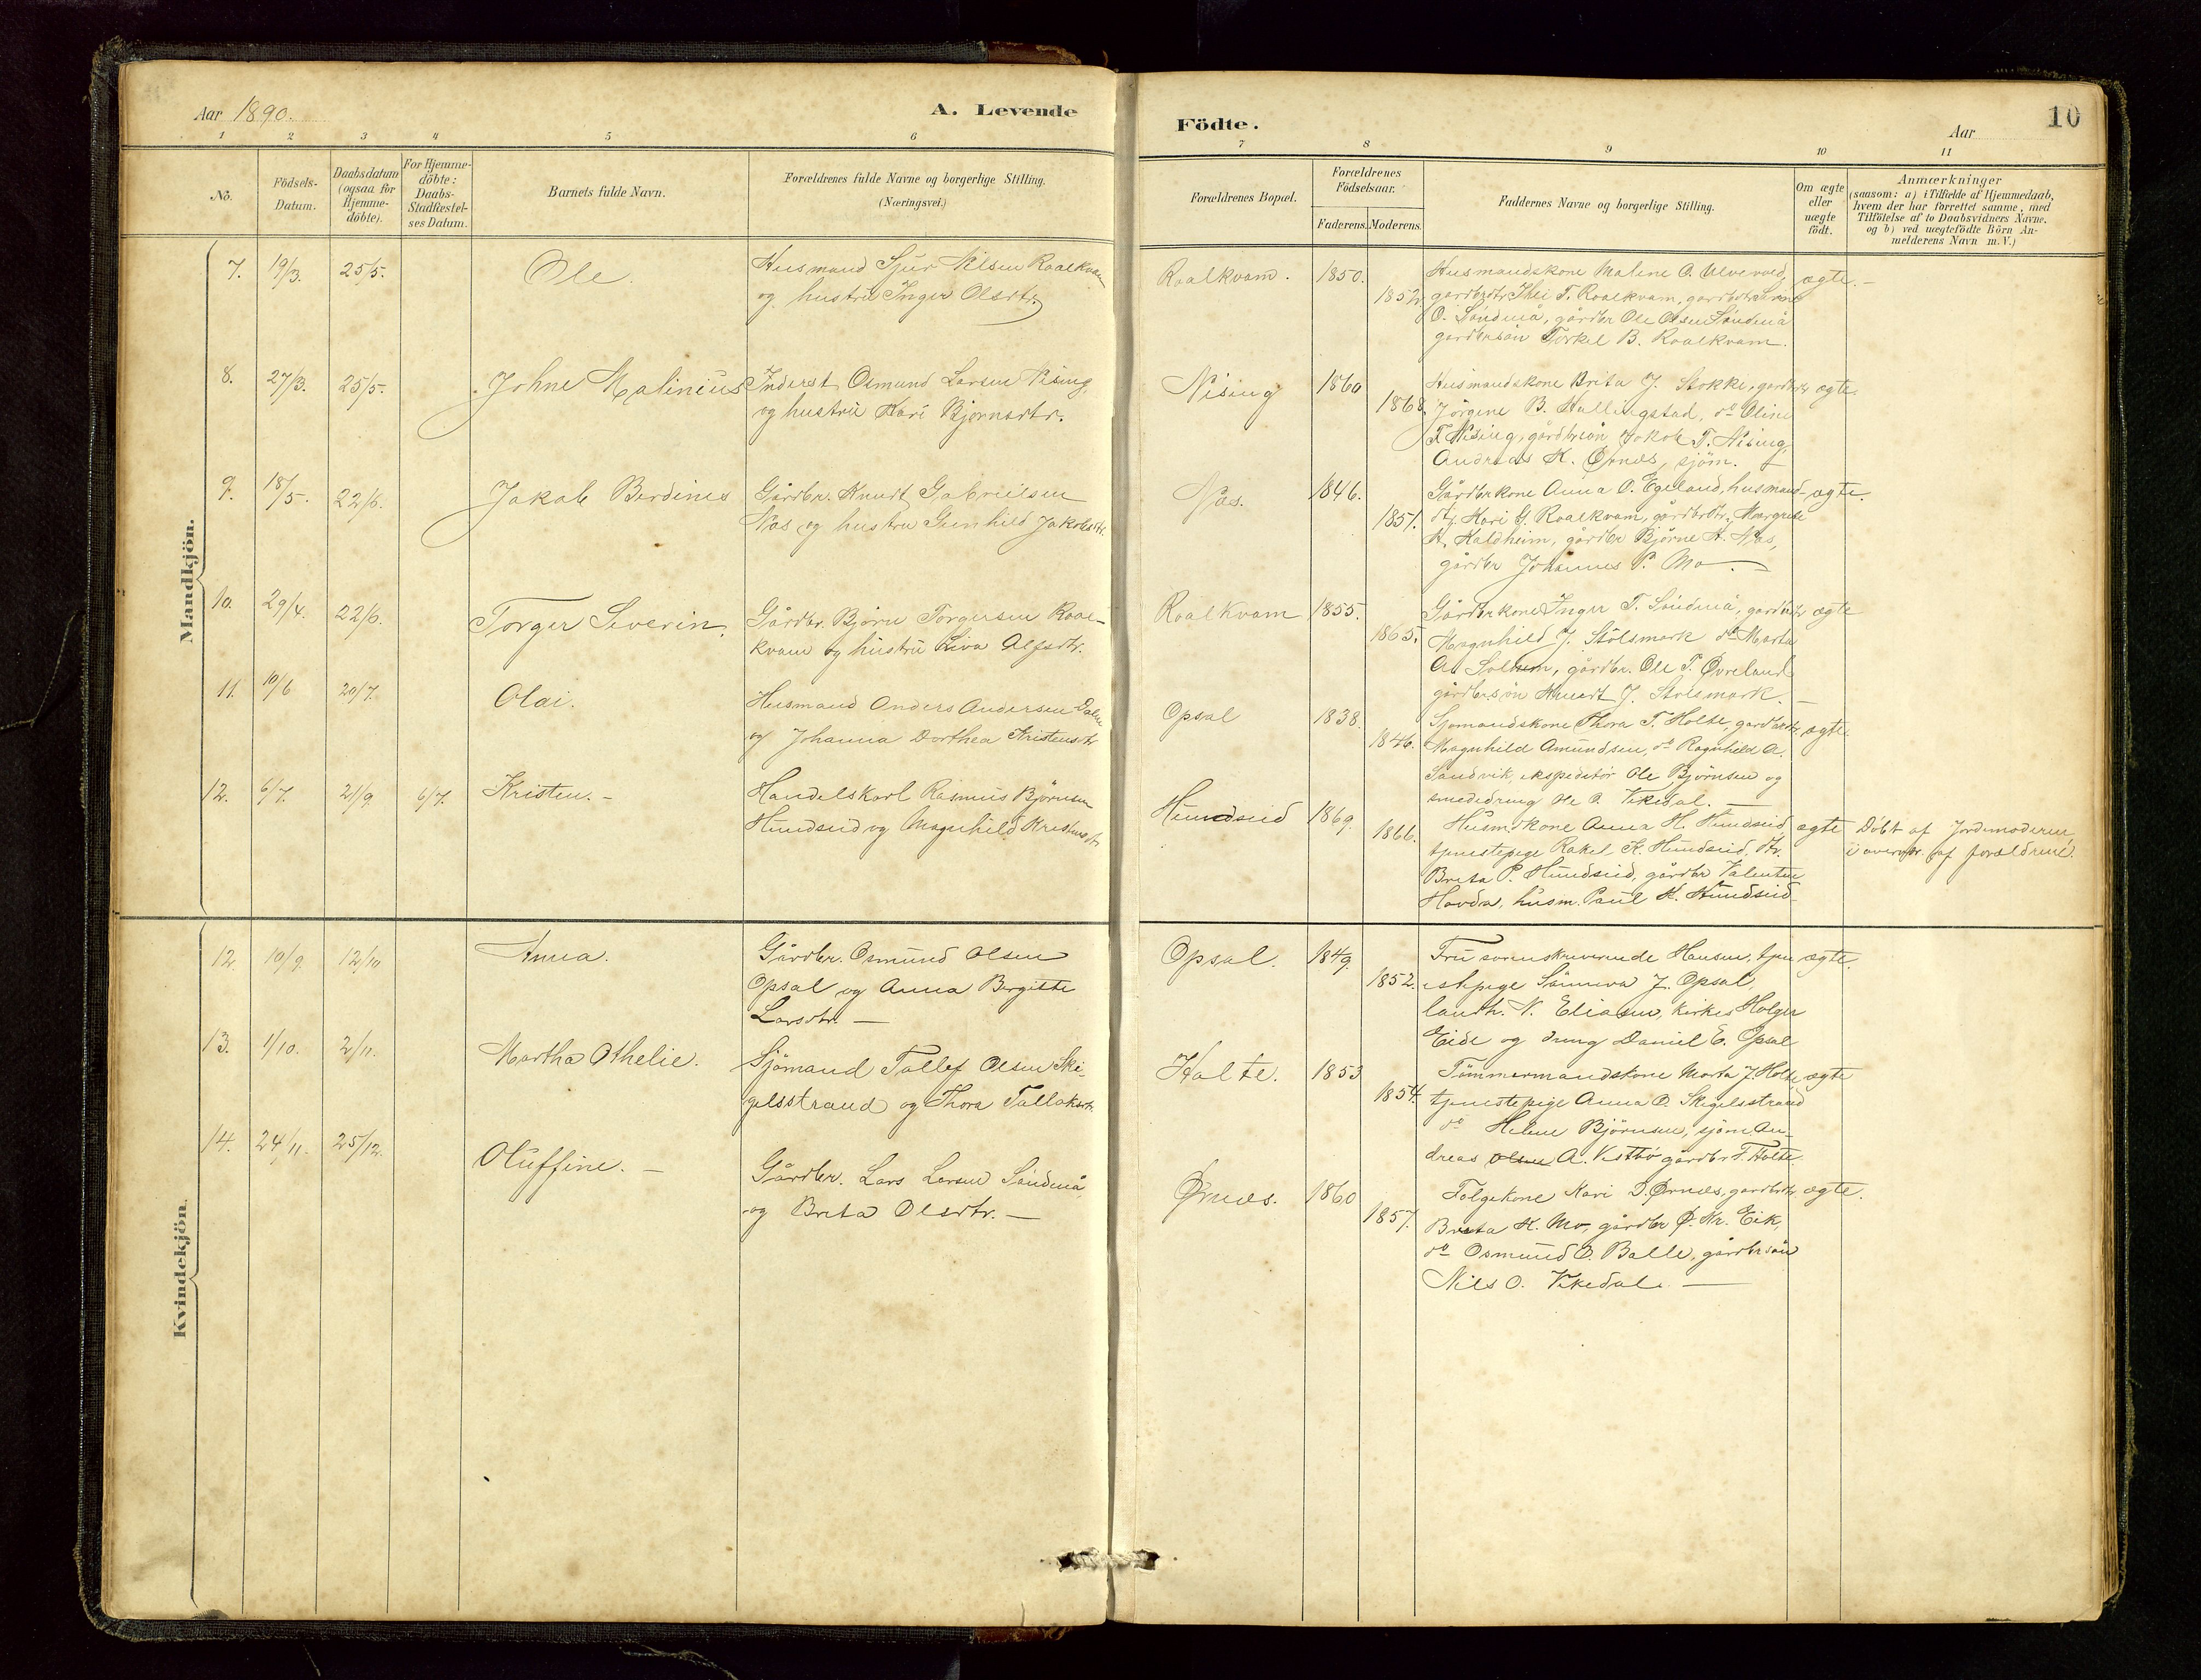 Aar 1890.
A. Levende
Födte.
Aar
10
1 2 3 4 5 6
7 8 9 10 11
No.
Födsels-Datum.
Daabsdatum (ogsaa for Hjemme-döbte).
For Hjemme-döbte: Daabs-Stadfæstel-ses Datum.
Barnets fulde Navn.
Forældrenes fulde Navne og borgerlige Stilling.
(Næringsvei.)
Forældrenes Bopæl.
Forældrenes Födselsaar.
Faderens. Moderens.
Faddernes Navne og borgerlige Stilling.
Om ægte eller uægte födt.
Anmærkninger
(saasom: a) i Tilfælde af Hjemmedaab,
hvem der har forrettet samme, med
Tilföielse af to Daabsvidners Navne,
og b) ved uægtefödte Börn An-
melderens Navn m. V.)
Mandkjön.
7. 19/3. 25/5. Ole.
Husmand Sjur Nilsen Roalkvam
og hustru Inger Olsdtr.
Roalkvam. 1850. 1852.
Husmandskone Malene O. Ulvevold,
gårdbrdtr T. Roalkvam, gardbrdtr
O. Söndenå, gårdbr Ole Olsen Söndenå
gårdbrsön Torkel B. Roalkvam.
ægte.
8. 27/3. 25/5. Johne Malinius
Inderst Osmund Larsen Nising,
og hustru Kari Bjornsdtr.
Nising 1860 1868.
Husmandskone Brita J. Stokke, gardbrdtr
Jörgine B. Hallingstad, do Oline
T. Nising, gårdbrsön Jakob T. Nising,
Andreas K. Örnes, sjöm.
ægte.
9. 18/5. 22/6. Jakob Berdines
Gårdbr. Knudt Gabrielsen
Næs og hustru Gunhild Jakobsdtr.
Næs. 1846. 1851.
Gårdbrkone Anna O. Egeland, husmand-
dtr. Kari G. Roalkvam, gårdbrdtr. Margrete
A. Kaldheim, gårdbr Björne A. Næs,
gårdbr Johannes P. Mo.
ægte.
10. 29/4. 22/6. Torger Severin.
Gårdbr. Björn Torgersen Roal-
kvam og hustru Liva Alfsdtr.
Roalkvam 1855. 1865.
Gårdbrkone Inger T. Söndenå, gardbrdtr
Magnhild J. Stölsmark do Marta
A. Solem, gårdbr. Ole T. Øvreland
gårdbrsön Knudt J. Stolsmark.
ægte
11. 10/6 20/7. Olai.
Husmand Anders Andersen
og Johanna Dorthea Kristensdtr
Opsal 1838. 1846.
Sjomandskone Thora T. Holte, gardbrdtr
Magnhild Amundsen, do Ragnhild A.
Sandvik, ekspeditör Ole Björnsen og
smededreng Ole O. Vikedal.
ægte
12. 6/7. 21/9. 6/7. Kristen.
Handelskarl Rasmus Björnsen
Hundseid og Magnhild Kristensdtr
Hundseid 1869. 1866.
Husm.kone Anna H. Hundseid,
tjenestepige Rakel K. Hundseid, dtr.
Brita P. Hundseid, gårdbr Valentin
Hovda, husm. Paul K. Hundseid
ægte
Döbt af Jordemoderen
i overv. af forældrene.
Kvindekjön.
12. 10/9. 12/10 Anna.
Gårdbr. Osmund Olsen
Opsal og Anna Bergitte
Larsdtr.
Opsal. 1849. 1852.
Fru sorenskriverinde Hansen, tjen
estepige Sönneva J. Opsal,
landh. N. Eliasen, kirkes Holger
Eide og dreng Daniel E. Opsal
ægte.
13. 1/10. 2/11. Martha Othelie.
Sjömand Tollef Olsen Ski-
gelsstrand og Thora Tollaksdtr.
Holte. 1853 1854.
Tömmermandskone Marta J. Holte
tjenestepige Anna O. Skigelsstrand
do Helene Björnsen, sjöm An-
dreas Olsen A. Vestbö gårdbr T. Holte.
ægte
14. 24/11. 25/12. Oluffine.
Gårdbr. Lars Larsen Söndenå,
og Brita Olsdtr.
Örnes. 1860 1857.
Folgekone Kari D. Örnes, gardbrdtr
Brita K. Mo, gårdbr Ö. Kr. Eik,
do Osmund O. Balle, gårdbrsön
Nils O. Vikedal.
ægte.